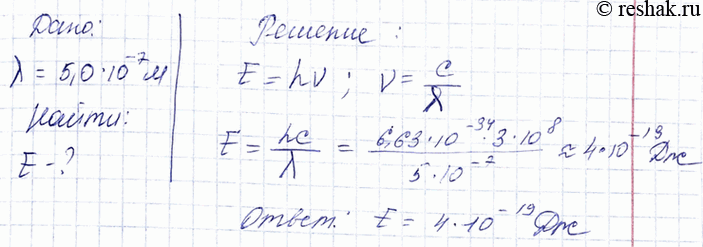 © reshak.ru
Дано:
λ = 5,0·10⁻⁷ м
Найти:
E - ?
Решение:
E = hν; ν = c/λ
E = hc/λ = 6,63·10⁻³⁴·3·10⁸/5·10⁻⁷ ≈ 4·10⁻¹⁹ Дж
Ответ: E = 4·10⁻¹⁹ Дж